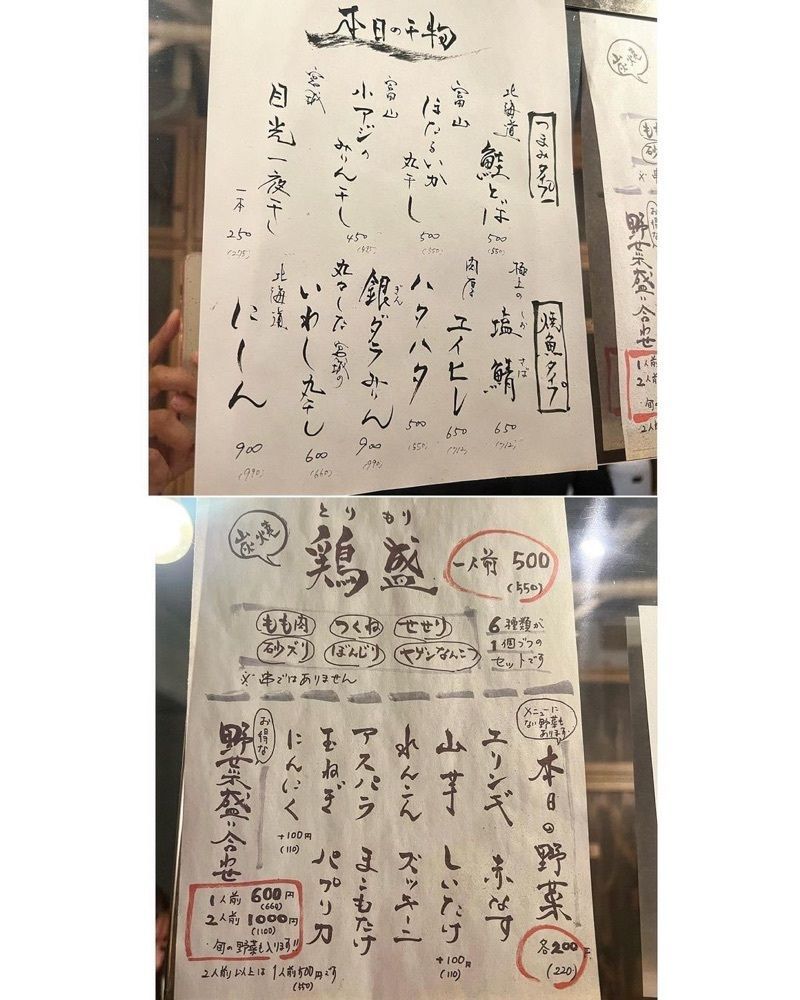 本日の干物
つまみタイプ
北海道
鮭とば
500
(550)
富山
ほたるいか
丸干し
500
(550)
富山
小アジの
みりん干し
450
(495)
宮城
目光一夜干し
一本
250
(275)
焼魚タイプ
極上の
しお さば
塩鯖
650
(712)
肉厚
エイヒレ
650
(712)
ハタハタ
500
(550)
ぎん
銀ダラみりん
900
(990)
丸々した宮城の
いわし丸干し
600
(660)
北海道
にしん
900
(990)
炭焼
お得な
野菜盛り合わせ
1人前
2人前
炭焼
とり もり
鶏盛
一人前 500
(550)
もも肉 つくね せせり
砂ズリ ぼんじり ヤゲンなんこつ
6種類が
1個づつの
セットです
※串ではありません
メニューに
ない野菜も
あります
本日の野菜
各200円
(220)
エリンギ 赤なす
山芋 しいたけ
+100円
(110)
れんこん ズッキーニ
アスパラ まこもたけ
玉ねぎ パプリカ
にんにく
+100円
(110)
お得な
野菜盛り合わせ
1人前 600円
(660)
2人前 1000円
(1100)
・旬の野菜も入ります!!
2人前以上は 1人前500円です
(550)